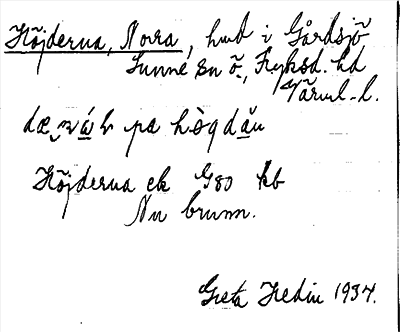 Höjderna, Norra, hmd i Gårdsjö
Sunne sn ö., Fryksd. hd
Värml. l.
på hògdäu
Höjderna ek G80 kb
Nu brunn.
Greta Hedin 1934.